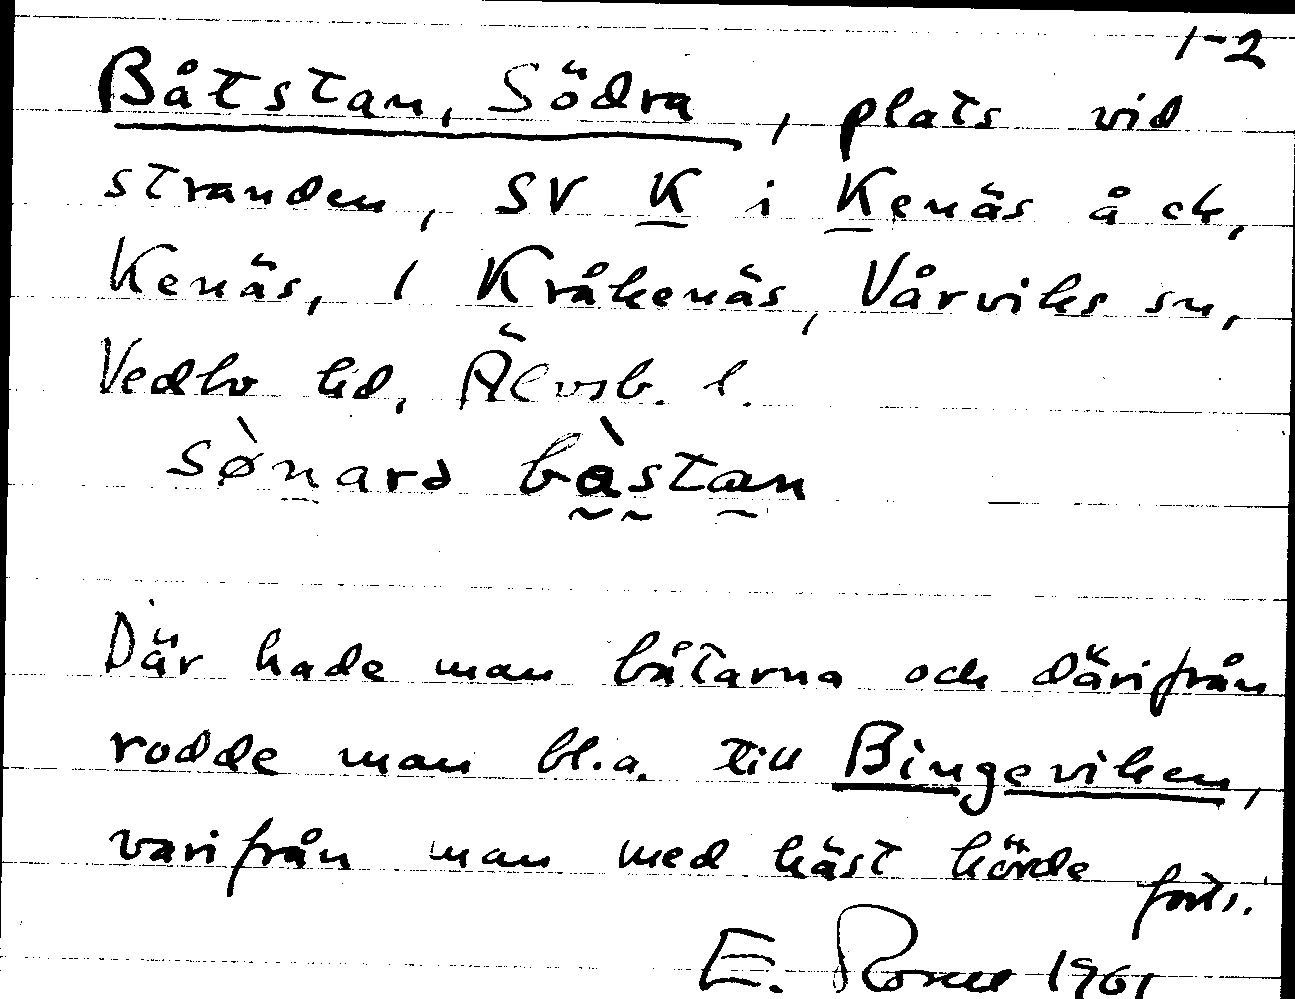 1-2
Båtstan, Södra, plats vid
stranden, SV K i Kenäs å ck,
Kenäs, 1 Kråkenäs, Vårviks sn,
Vedbo hd, Älvsb. l.
sø̀nard bàstan
Där hade man båtarna och därifrån
rodde man bl.a. till Bingeviken,
varifrån man med häst körde forts.
E. 1961